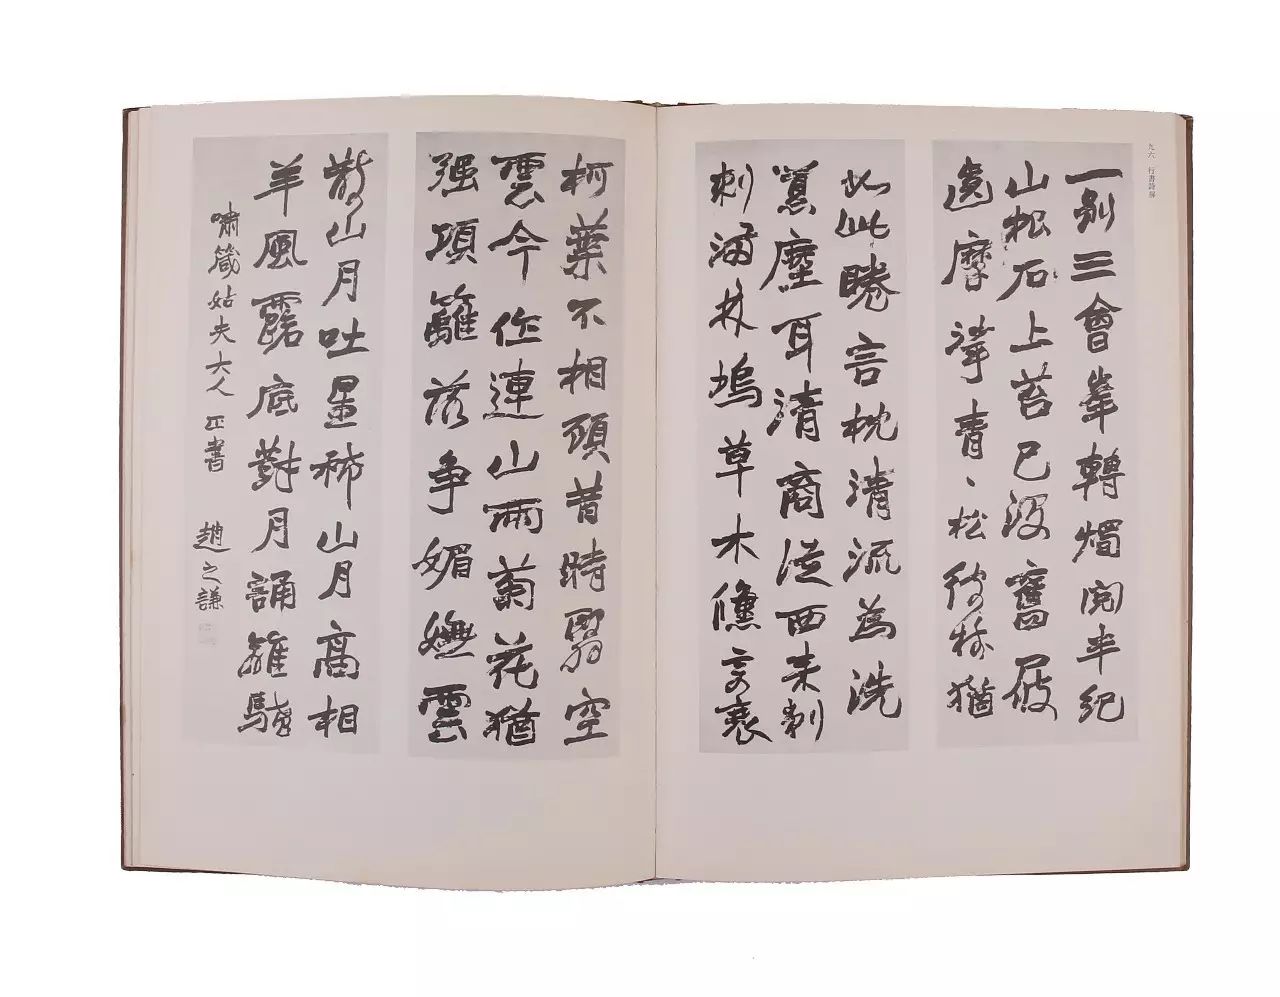 九六 行書詩屏
一別三會峯轉燭閱半紀
山根石上苔已沒舊屐
摩青、松猶
如此睠言枕清流為洗
塵耳清商從西來刺
刺滿林塢草木衰
柯葉不相顧昔時翳空
雲今作連山雨菊花猶
强項籬落爭媚嫵雲
散山月吐星稀山月高相
羊風露底對月誦離騷
嘯篯姑夫大人正書 趙之謙